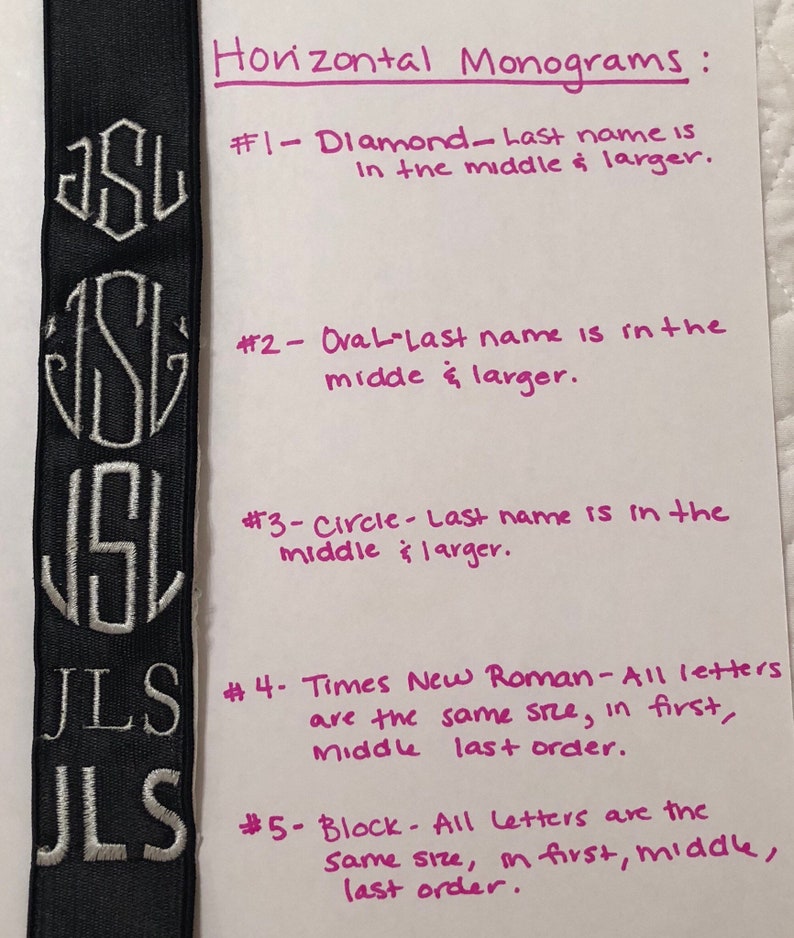 Horizontal Monograms:
#1- Diamond-Last name is
in the middle & larger.
JSL
#2- Oval-Last name is in the
midde & larger.
JSL
#3-Circle-Last name is in the
middle & larger.
JSL
#4- Times New Roman-All letters
are the same size, in first,
middle last order.
JLS
#5- Block- All letters are the
same size, in first, middle,
last order.
JLS